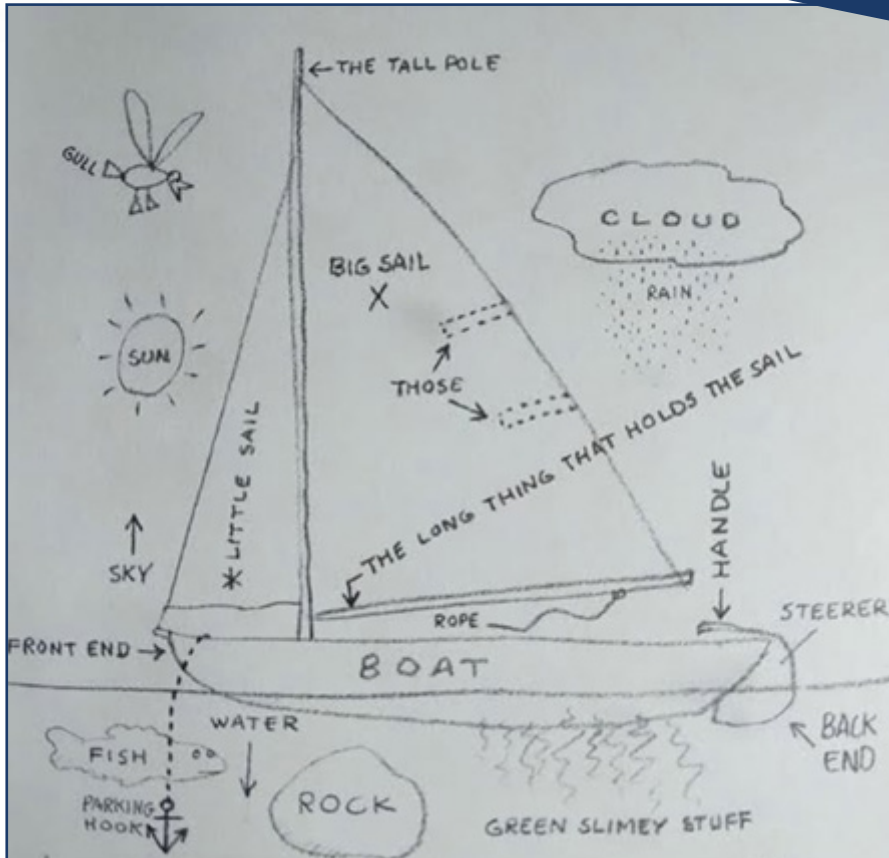 THE TALL POLE
GULL
CLOUD
RAIN
BIG SAIL
SUN
THOSE
THE LONG THING THAT HOLDS THE SAIL
LITTLE SAIL
HANDLE
SKY
ROPE
STEERER
FRONT END
BOAT
WATER
BACK
END
FISH
PARKING
HOOK
ROCK
GREEN SLIMEY STUFF